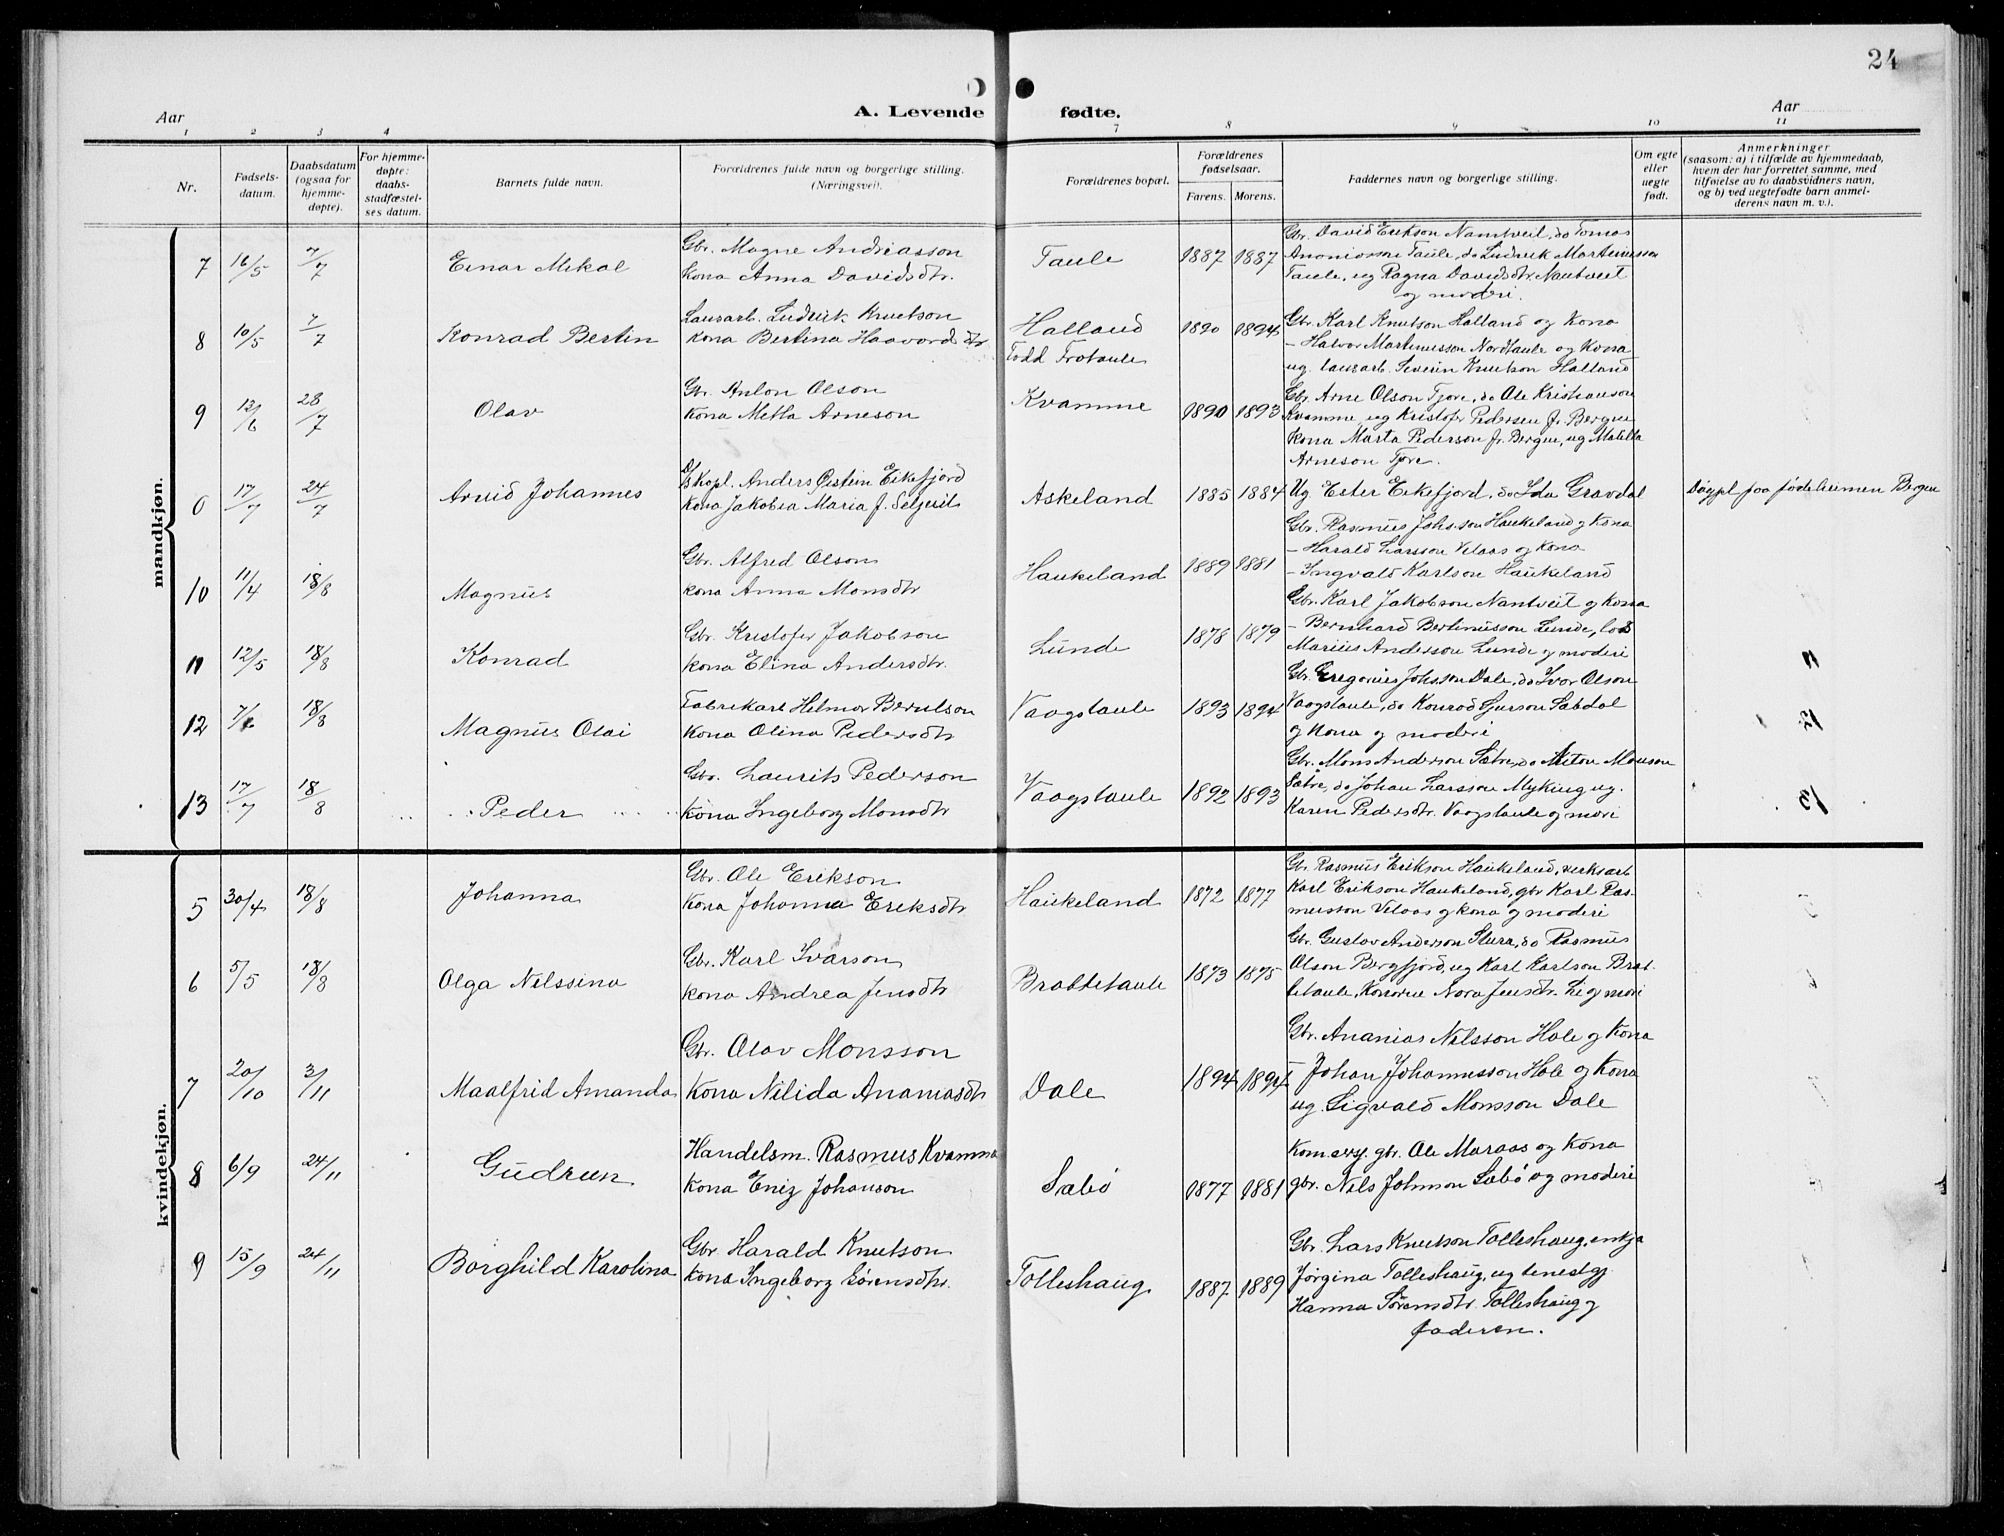 24
A. Levende fødte.
Aar
Aar
1 2 3 4 7 8 9 10 11
Nr.
Fødsels-
datum.
Daabsdatum
(ogsaa for
hjemme-
døpte).
For hjemme-
døpte:
daabs-
stadfæstel-
ses datum.
Barnets fulde navn.
Forældrenes fulde navn og borgerlige stilling.
(Næringsvei).
Forældrenes bopæl.
Forældrenes
fødselsaar.
Farens. Morens.
Faddernes navn og borgerlige stilling.
Om egte
eller
uegte
født.
Anmerkninger
(saasom: a) i tilfælde av hjemmedaab,
hvem der har forrettet samme, med
tilføielse av to daabsvidners navn,
og b) ved uegtefødte barn anmel-
derens navn m. v.).
mandkjøn.
7 16/5 7/7 Einar Mikal
Gbr. Magne Andreasson
Kona Anna Davidsdtr.
Taule 1887 1887
Gbr. David Erikson Nantveit, do Tomas
Ananiasson Taule, do Ludvik Martinusson
Taule, ug Ragna Davidsdtr. Nantveit
og moderi.
8 10/5 7/7 Konrad Bertin
Lausarb. Ludvik Knutson
Kona Bertina Haavardsdtr
Halland
Fødd Frotaule
1890 1894
Gbr. Karl Knutson Halland og Kona
- Halvor Martinusson Nordtaule og Kona
ug. lausarb. Severin Knutson Halland
9 12/6 28/7 Olav
Gbr. Anton Olson
Kona Metta Arneson
Kvamme 1890 1893
Gbr. Arne Olson Tjore, do Ole Kristianson
Kvamme, ug Kristofer Pedersen fr. Bergen
Kona Marta Pederson fr. Bergen, ug Matilda
Arneson Tjore.
0 17/7 24/7 Arvid Johannes
Skapl. Anders Øistein Eikefjord
Kona Jakobea Maria f. Seljeid
Askeland 1885 1884
Ug Ester Eikefjord, do Ida Gravdal
Døypt paa fødeheimen Bergen
10 11/4 18/8 Magnus
Gbr. Alfred Olson
kona Anna Monsdtr
Haukeland 1889 1881
Gbr. Rasmus Johsson Haukeland og Kona
- Harald Larsson Velaas og Kona
- Ingvald Karlson Haukeland
11 12/5 18/8 Konrad
Gbr. Kristofer Jakobson
kona Elina Andersdtr.
Lunde 1878 1879
Gbr. Karl Jakobson Nantveit og Kona
- Bernhard Bertinusson Lunde, los
Marius Anderson Lunde og moderi
11
12 7/6 18/8 Magnus Olai
Fabrikarb Helmer Berntson
Kona Olina Pedersdtr
Vaagstaule 1893 1894
Gbr. Gregorius Johsson Dale, do Ivar Olson
Vaagstaule, do Konrad Gurson Sabdal
og Kona og moderi
12
13 17/7 18/8 Peder
Gbr. Laurits Pederson
Kona Ingeborg Monsdtr
Vaagstaule 1892 1893
Gbr. Mons Anderson Sætre, do Anton Monson
Sætre, do Johan Larsson Myking ug.
Karen Pedersdtr. Vaagstaule og mori
13
kvindekjøn.
5 30/4 18/8 Johanna
Gbr. Ole Erikson
Kona Johanna Eriksdtr
Haukeland 1872 1877
Gbr. Rasmus Erikson Haukeland, verksarb
Karl Erikson Haukeland, gbr Karl Ras-
musson Velaas og kona og moderi
6 5/5 18/8 Olga Nilssina
Gbr. Karl Ivarson
kona Andrea Jensdtr
Brattetaule 1873 1875
Gbr. Gustav Anderson Stura, do Rasmus
Olson Bergfjord, ug Karl Karlson Brat-
tetaule, Konorne Nora Jensdtr. Li og mori
7 20/10 3/11 Maalfrid Amanda
Gbr. Olav Monsson
Kona Nilida Ananiasdtr
Dale 1894 1894
Gbr. Ananias Nilsson Hole og Kona
- Johan Johannesson Hole og Kona
ug. Sigvald Monsson Dale
8 6/9 24/11 Gudrun
Handelsm. Rasmus Kvamme
Kona Eniz Johanson
Sæbø 1877 1881
Kom.erg. gbr. Ole Maraas og Kona
gbr. Nils Johnson Sæbø og moderi
9 15/9 24/11 Borghild Karolina
Gbr Harald Knutson
Kona Ingeborg Sørensdtr.
Tolleshaug 1887 1889
Gbr. Lars Knutson Tolleshaug, enkja
Jørgina Tolleshaug, ug tenestgj.
Hanna Sørensdtr. Tolleshaug og
faderen.